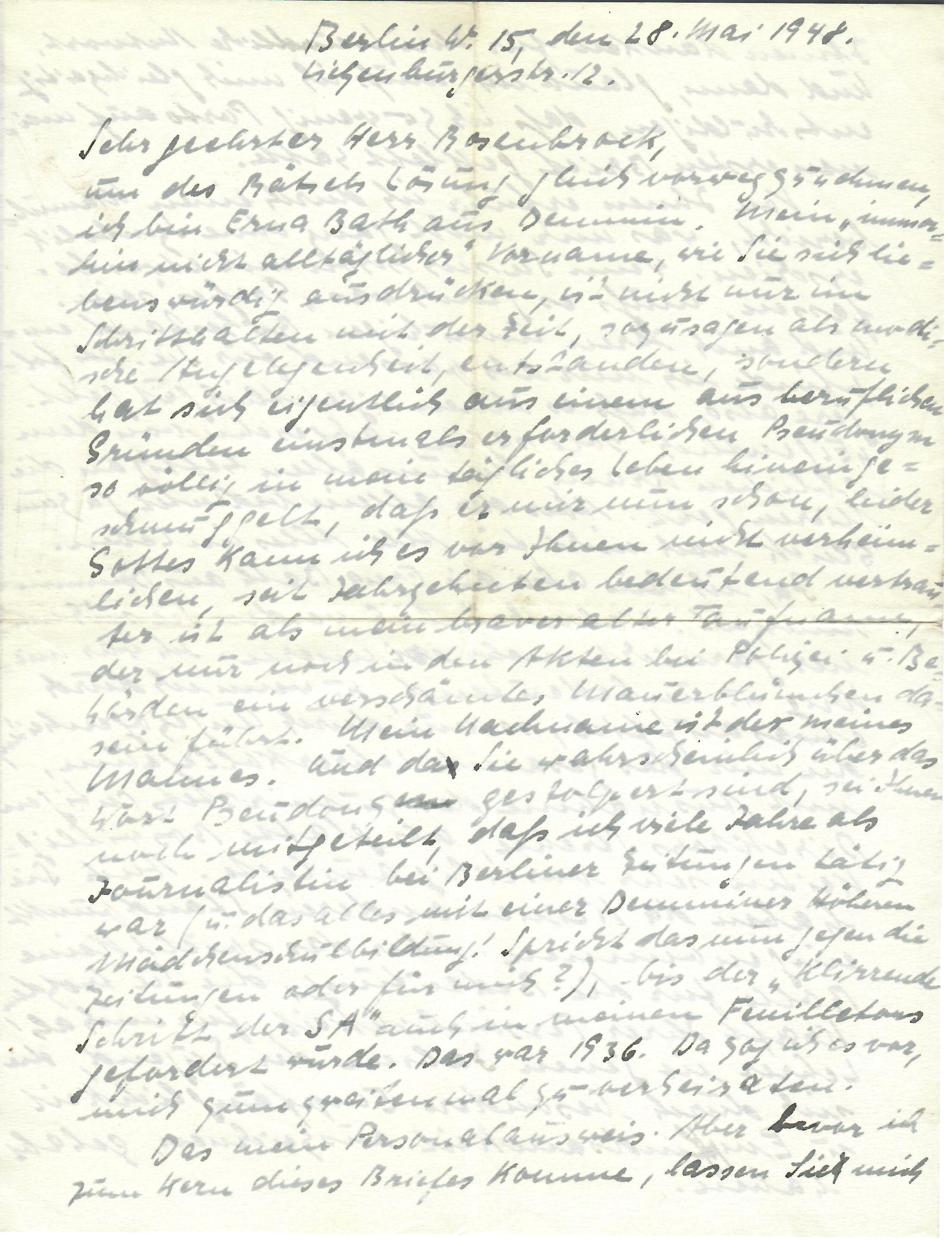 Berlin W. 15, den 28. Mai 1948.
Lietzenburgerstr. 12.
Sehr geehrter Herr Rosenbrock,
um des Rätsels Lösung gleich vorwegzunehmen,
ich bin Erna Bath aus Demmin. Mein „immer=
hin nicht alltäglicher" Vorname, wie Sie sich lie=
benswürdig ausdrücken, ist nicht nur im
Schritthalten mit der Zeit, sozusagen als modi=
sche Angelegenheit, entstanden, sondern
hat sich eigentlich aus einem aus beruflichen
Gründen einstmals erforderlichen Pseudonym
so völlig in mein tägliches Leben hineinge=
schmuggelt, daß er mir nun schon, leider
Gottes kann ich es vor Ihnen nicht verheim=
lichen, seit Jahrzehnten bedeutend vertrau=
ter ist als mein braver alter Taufname,
der nur noch in den Akten bei Polizei u. Be=
hörden ein verschämtes Mauerblümchen da=
sein führt. Mein Nachname ist der meines
Mannes. Und da Sie wahrscheinlich über das
Wort Pseudonym gestolpert sind, sei Ihnen
noch mitgeteilt, daß ich viele Jahre als
Journalistin bei Berliner Zeitungen tätig
war (u. das alles mit einer Demminer Höheren
Mädchenschulbildung! Spricht das nun gegen die
Zeitungen oder für mich?), bis der „Klirrende
Schritt der SA" auch in meinen Feuilletons
gefordert wurde. Das war 1936. Da zog ich es vor,
mich zum zweitenmal zu verheiraten.
Das mein Personalausweis. Aber bevor ich
zum Kern dieses Briefes komme, lassen Sie mich